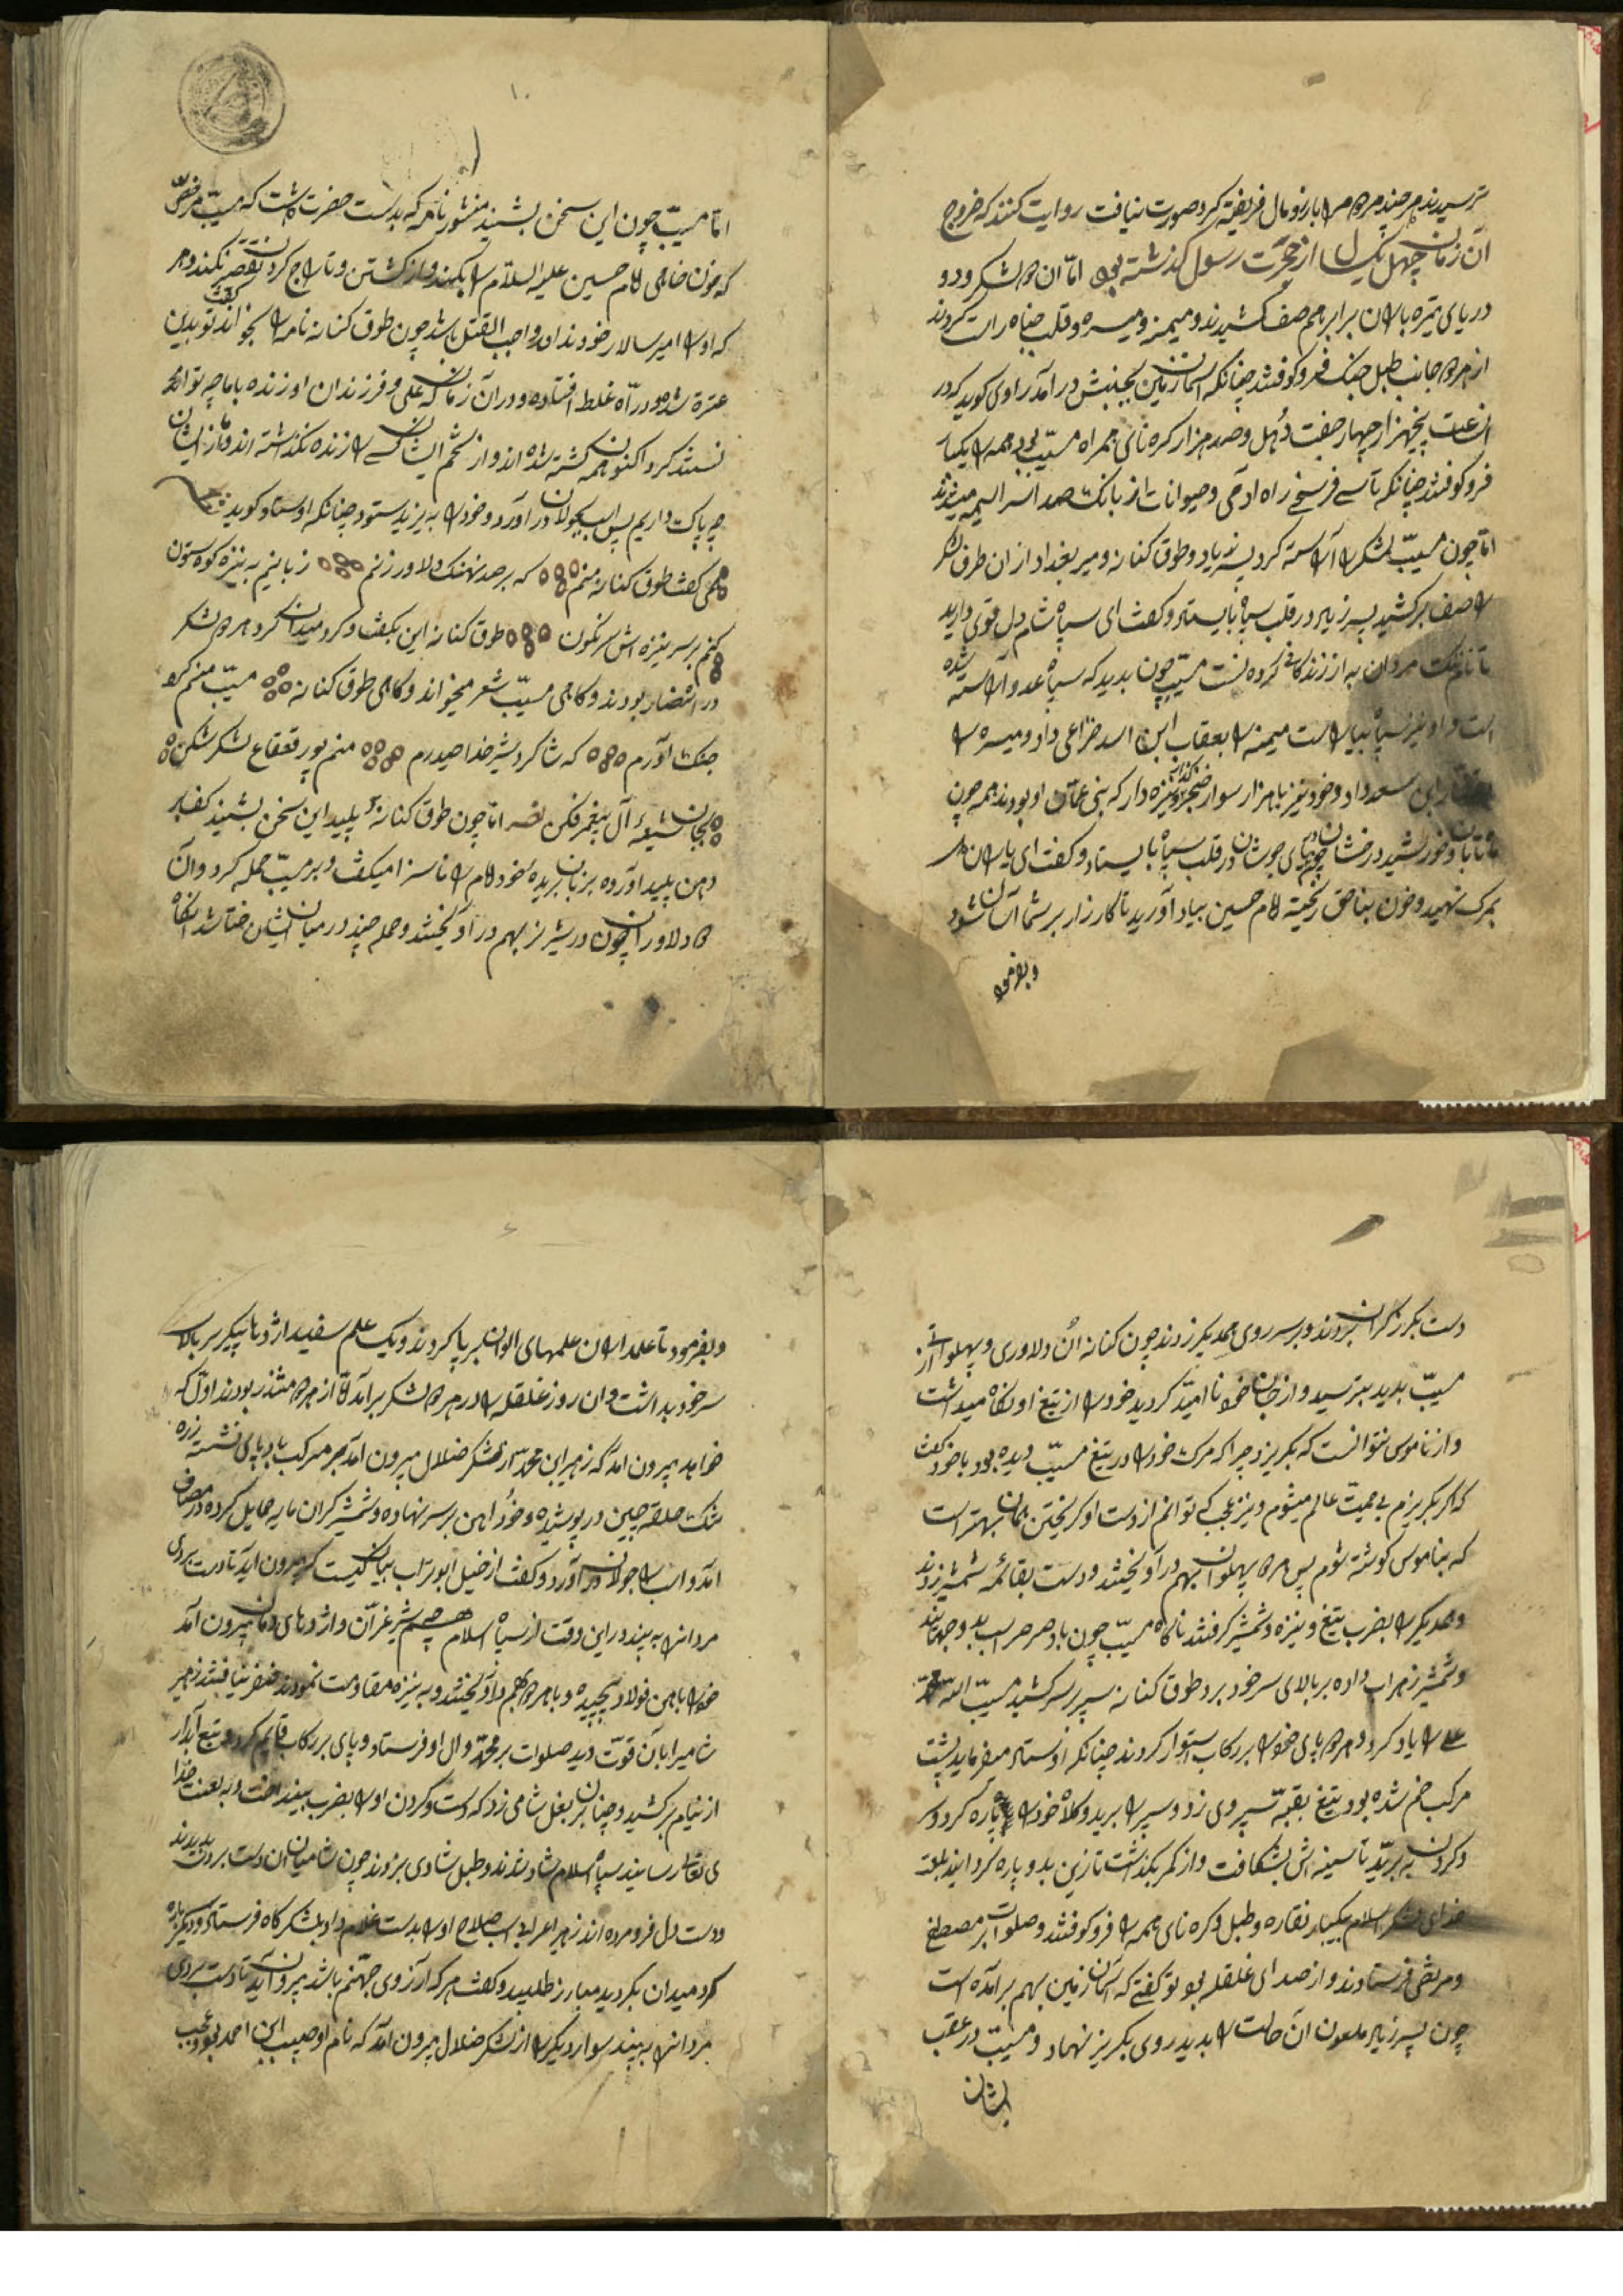 ترسیدند هر چند مردم را بازر و مال فریفته کرد صورت نیافت روایت کنند که خروج
آن زمان چهل یک سال از هجرت رسول گذشته بود اما آن دو لشکر در دو
دریای تیره باران برابر هم صف کشیدند و میمنه و میسره و قلب جناح راست کردند
از هر دو جانب طبل جنک فرو کوفتند چنانکه آسمان زمین بجنبش در آمد راوی کوید که در
آن ساعت پنجهزار چهار جفت دهل و صد هزار کره نای همراه مسیّب بود همه را یکبار
فرو کوفتند چنانکه تا سی فرسخی راه آدمی و حیوانات از بانک صدا سراسیمه میشدند
اما چون مسیّب لشکر را آراسته کرد پسر زیاد و طوق کنانه و میر بغداد از آن طرف لشکر
را صف برکشید پسر زیاد در قلب سپاه بایستاد و کفت ای سپاه شام دل قوی دارید
تا نام نیک مردان به از زندکانی کروه نست مسیّب چون بدید که سپاه عدو آراسته شده
است او نیز سپاه بیاراست میمنه را بعقاب ابن اسد خزاعی داد و میسره را
ابن سعد داد و خود نیز با هزار سوار خنجر کذار نیزه دار که بنی عمّان او بودند همه چون
ماه تابان و خورشید درخشان در قلب سپاه بایستاد و کفت ای یاران دل
بمرک نهید و خون بناحق ریخته امام حسین بیاد آورید تا کارزار بر شما آسان شود
و بفرمود
اما مسیّب چون این سخن بشنید منشور نامه که بدست حضرت داشت که مسیّب مرخص
که خون خواهی امام حسین علیه السلام را بکند و از کشتن و تاراج کردن تقصیر نکند و هر
که او را امیر سالار خود نداند واجب القتل باشد چون طوق کنانه نامه را بخواند کفت تو بدین
غره شده و در راه غلط افتاده و در آن زمان که علی و فرزندان او زنده با ما چه توانستند
نستند کرد اکنون همه کشته شده اند و از تخم ایشان کسی را زنده نکذاشته اند و ما از ایشان
چه باک داریم پس اسب بجولان در آورد و خود را به یزید ستود چنانکه اوستاد کوید
همی کفت طوق کنانه منم که بر صد نهنک دلاور زنم ز بانیم به نیزه کوه ستون
کنم بر سر نیزه اش سرنکون طوق کنانه این بکفت و کرد میدان کرد هر دو لشکر
در انتظار بودند و کاهی مسیّب شعر میخواند و کاهی طوق کنانه مسیّب منم کو
جنک آورم که شاکرد شیر خدا حیدرم منم پور قعقاع لشکر شکن
بجان شیعهٔ آل پیغمبر فکن اما چون طوق کنانهٔ پلید این سخن بشنید کف بر
دهن پلید آورده بزبان بریده خود امام را ناسزا میکفت و بر مسیّب حمله کرد و آن
دو دلاوران چون در شیر نر بهم در آویختند و حمله چند در میان ایشان خطا شد آنکاه
دست بکرز کران بردند و بر سر روی همدیکر زدند چون کنانه آن دلاوری و پهلوانی از
مسیّب بدید بترسید و از جان خود ناامید کردید خود را از تیغ او نکاه میداشت
و از ناموسی نتوانست که بکریزد چرا که مرک خود را در تیغ مسیّب دیده بود با خود کفت
که اکر بکریزم بی حمیت عالم میشوم و نیز عجب کی توانم از دست او کریختن همان بهتر است
که بناموس کوشته شوم پس هر دو پهلوان بهم در آویختند و دست بقائمه شمشیر زدند
و همدیکر را بضرب تیغ و نیزه و شمشیر کرفتند ناکاه مسیّب چون باد صرصر اسب بدو جهانید
و شمشیر زهراب داده بر بالای سر خود برد طوق کنانه سپر بر سر کشید مسیّب الله محمد
علی را یاد کرد و هر دو پای خود را بر رکاب استوار کردند چنانکه اوستاد میفرماید پشت
مرکب خم شده بود تیغ بقبّه سپر وی زد و سپر را برید و کلاه خود را پاره کرد و سر
و کردن ببرید تا سینه اش بشکافت و از کمر بکذشت تا زین بدو پاره کردانید بلعنت
خدای لشکر اسلام بیکبار نقاره و طبل و کره نای همه را فرو کوفتند و صلوات بر مصطفی
و مرتضی فرستادند و از صدای غلغله بود تو کفتی که آسمان زمین بهم برآمده است
چون پسر زیاد ملعون آن حالت را بدید روی بکریز نهاد و مسیّب در عقب
ایشان
و بفرمود تا علمداران علمهای الوان بر پا کردند و یک علم سفید اژدها پیکر بر بالا
سر خود بداشت و آن روز غلغله در هر دو لشکر برآمد تا از هر دو منتظر بودند اول که
خواهد بیرون آمد که زهیر ابن محمد از لشکر ضلال بیرون آمد بر مرکب بادپای نشسته زره
تنک حلقه چین در پوشیده و خود آهن بر سر نهاده و شمشیر کران مایه حمایل کرده در مصاف
آمد و اسب را جولان در آورد و کفت از خیل ابوتراب بیان کیست که بیرون آید تا دست بردی
مردانه به بیند در این وقت از سپاه اسلام چشم شیر غرّان و اژدهای دمان بیرون آمد
خود را بآهن فولاد پیچیده و با هر دو بهم در آویختند و به نیزه مقاومت نمودند ظفر نیافتند زهیر
شامی را بآن قوّت دید صلوات بر محمد و آل او فرستاد و پای بر رکاب قایم کرد و تیغ آبدار
از نیام برکشید و چنان بر بغل شامی زد که دست و کردن او را بضرب بینداخت و به لعنت خدا
ی تعالی رسانید سپاه اسلام شاد شدند و طبل شادی بزدند چون شامیان آن دست برد بدیدند
و دست دل فرومرده اند زهیر اعرابی اسب صلاح او را بدست غلام داد بلشکرکاه فرستاد و دیکر باره
کرد میدان بکردید مبارز طلبید و کفت هر که آرزوی جهنّم باشد بیرون آید تا دست بردی
مردانه به بیند سوار دیکر از لشکر ضلال بیرون آمد که نام او حبیب ابن احمد بود عجب